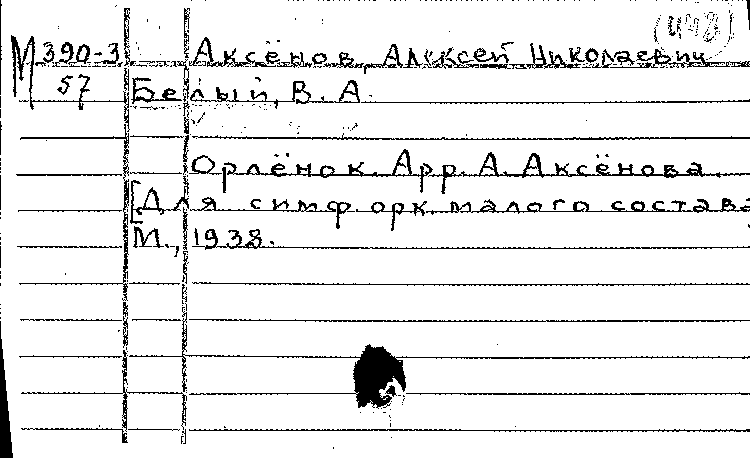 (448)
М 390-3 Аксёнов, Алексей Николаевич
57 Белый, В. А.
Орлёнок. Арр. А. Аксёнова.
[Для симф. орк. малого состава]
М., 1938.